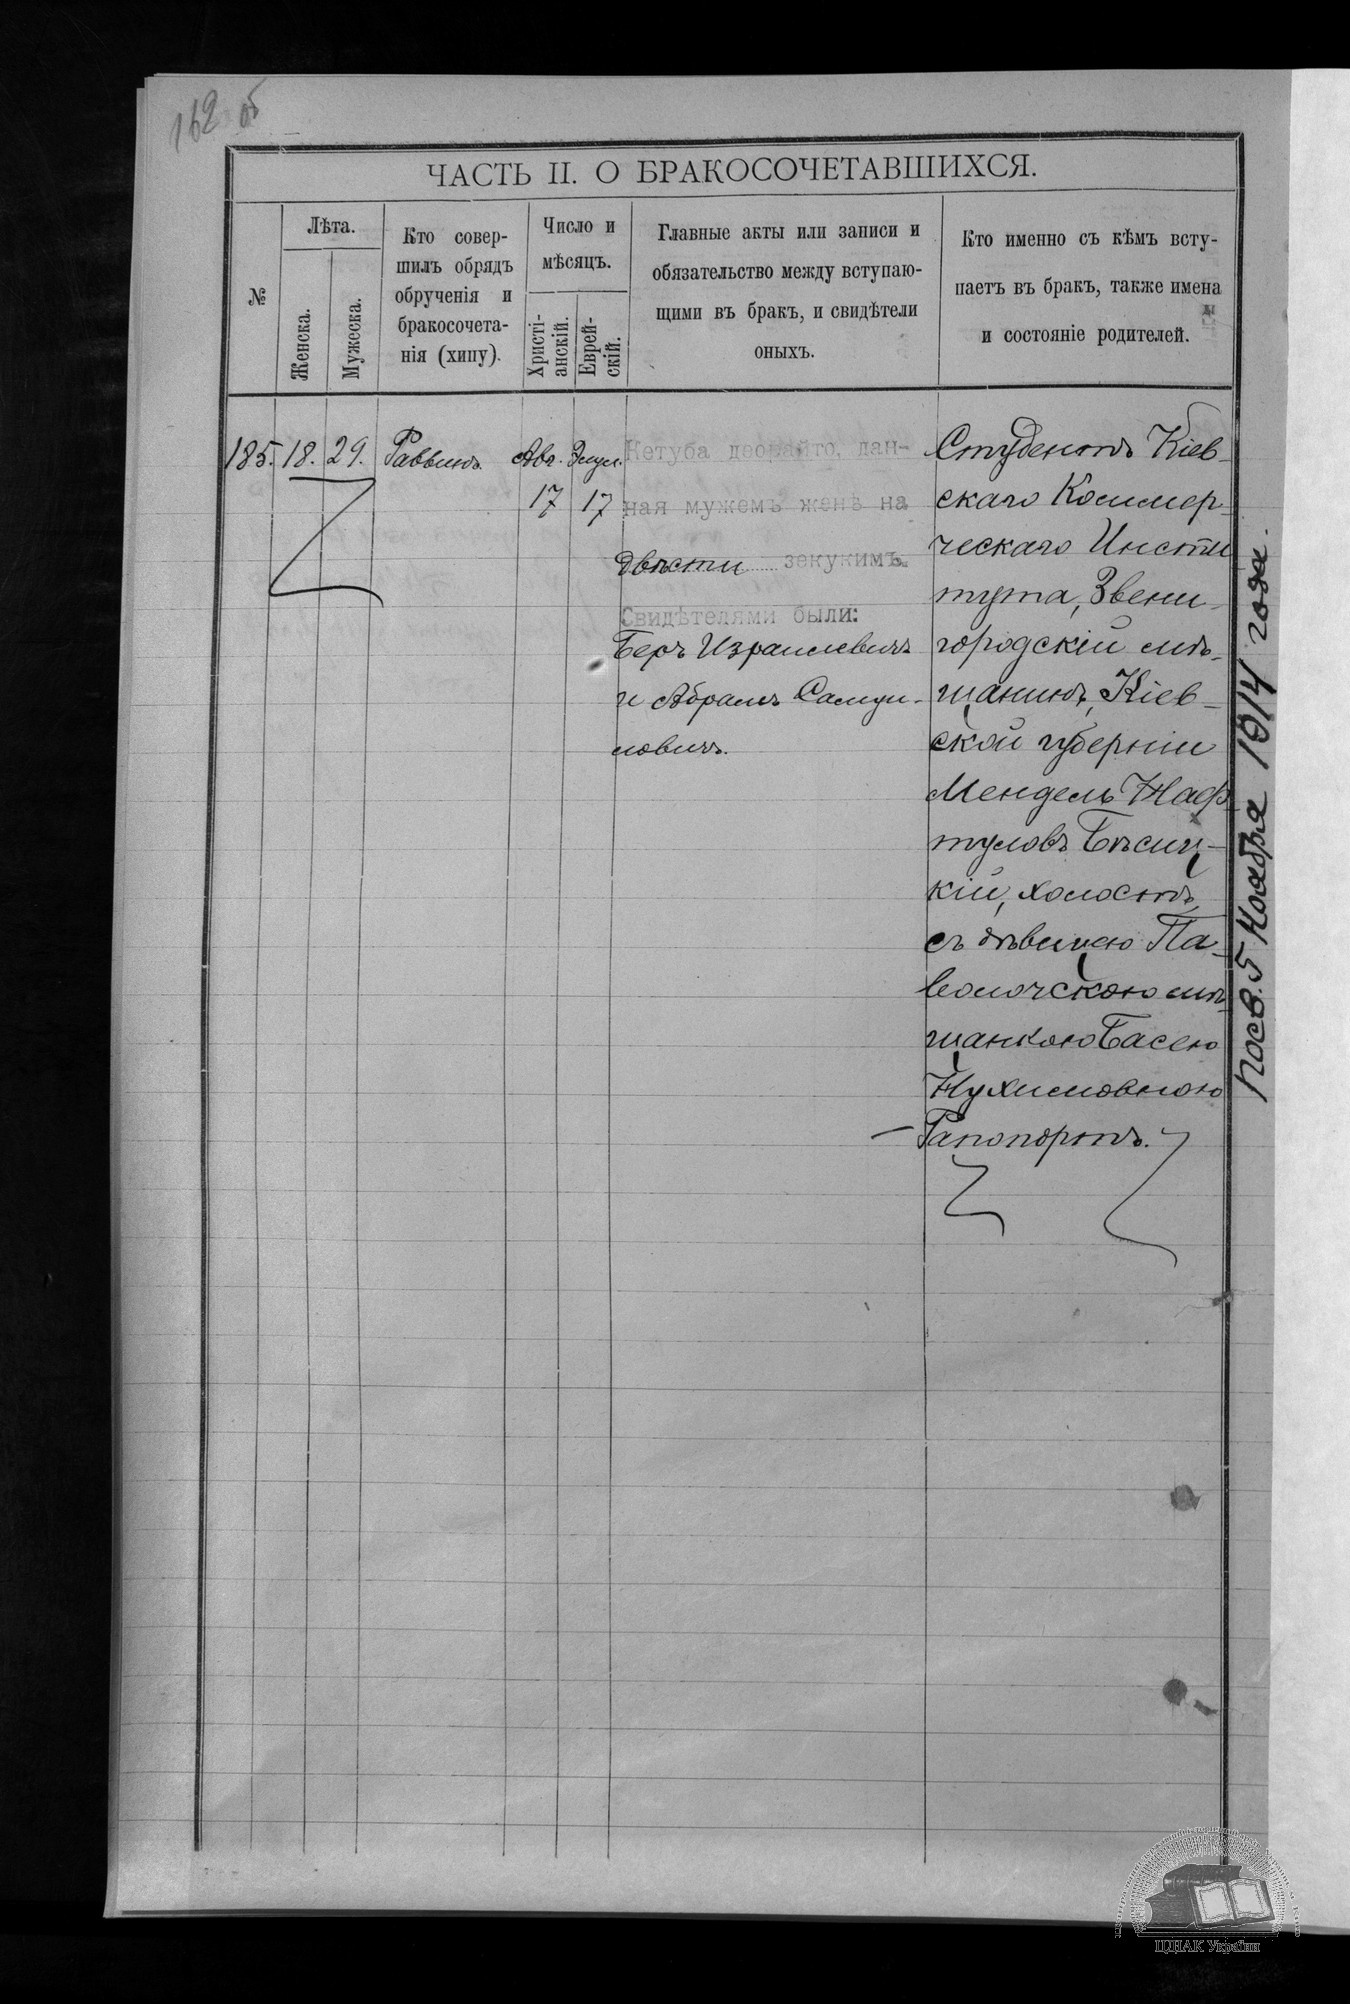 162 об
ЧАСТЬ II. О БРАКОСОЧЕТАВШИХСЯ.
№
Лѣта.
Женска.
Мужеска.
Кто совер-
шилъ обрядъ
обрученія и
бракосочета-
нія (хипу).
Число и
мѣсяцъ.
Христі-
анскій.
Еврей-
скій.
Главные акты или записи и
обязательство между вступаю-
щими въ бракъ, и свидѣтели
оныхъ.
Кто именно съ кѣмъ всту-
паетъ въ бракъ, также имена
и состояніе родителей.
185.
18.
29.
Раввинъ
Авг.
17
Элул.
17
Кетуба деорайто, дан-
ная мужемъ женѣ на
двѣсти зекукимъ.
Свидѣтелями были:
Беръ Израилевичъ
и Абрамъ Самуи-
ловичъ.
Студентъ Кіев-
скаго Коммер-
ческаго Инсти
тута, Звени-
городскій мѣ-
щанинъ, Кіев-
ской губерніи
Мендель Наф
туловъ Бѣсиц-
кій, холостъ,
съ дѣвицею Па-
волочскою мѣ-
щанкою Басею
Нухимовною
Рапопортъ.
посв. 5 Ноября 1914 года.
ЦДІАК України